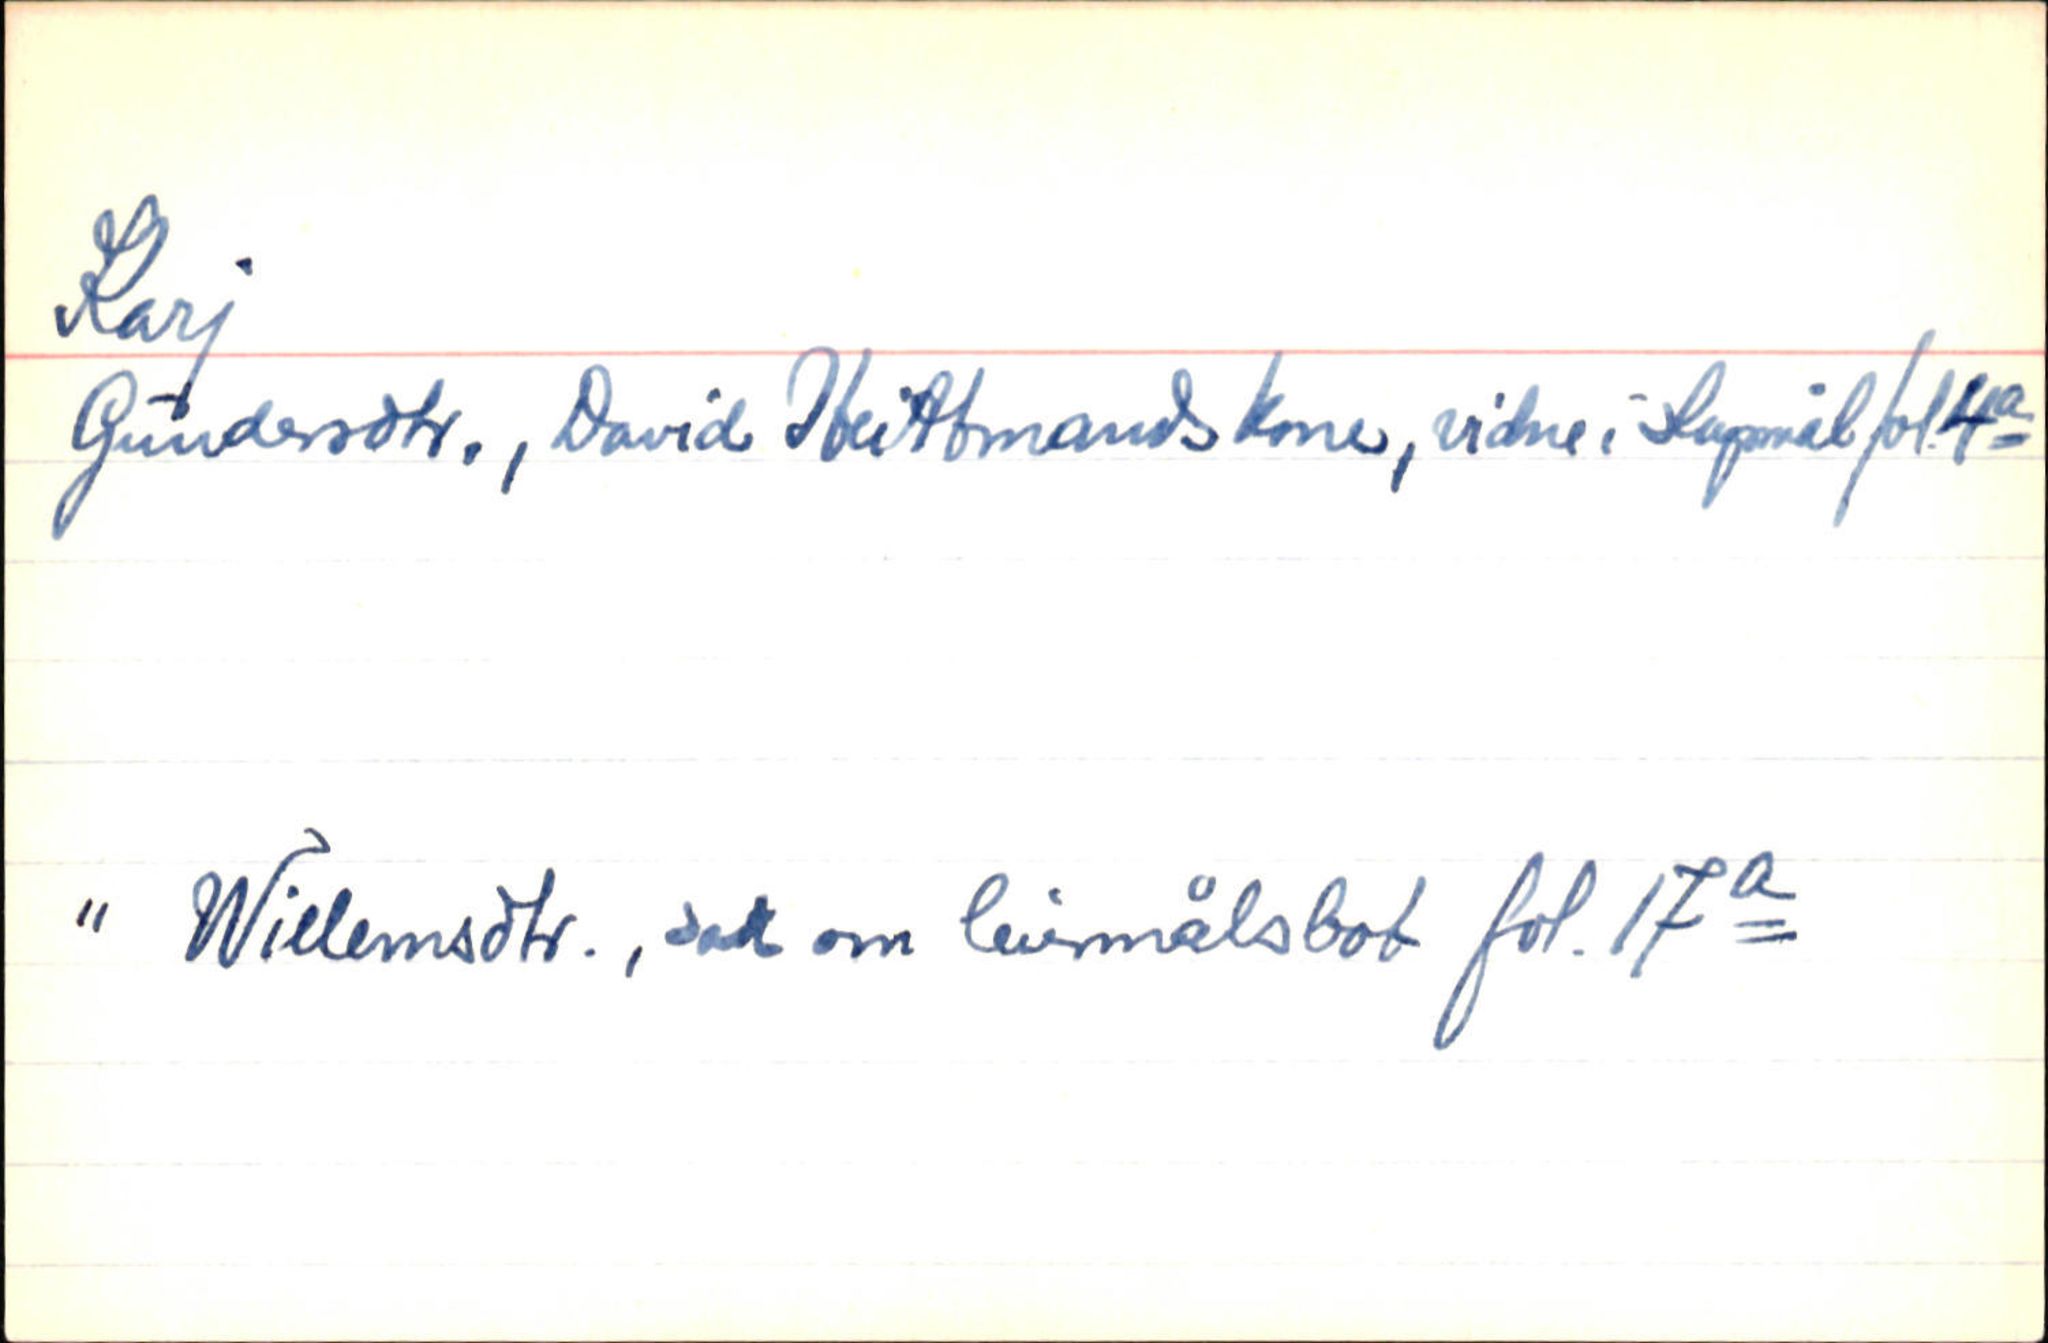 Karj
Gundersdtr., David Heitbmands kone, vidne i slagsmål fol. 4a
" Willemsdtr., sak om leiermålsbot fol. 17a